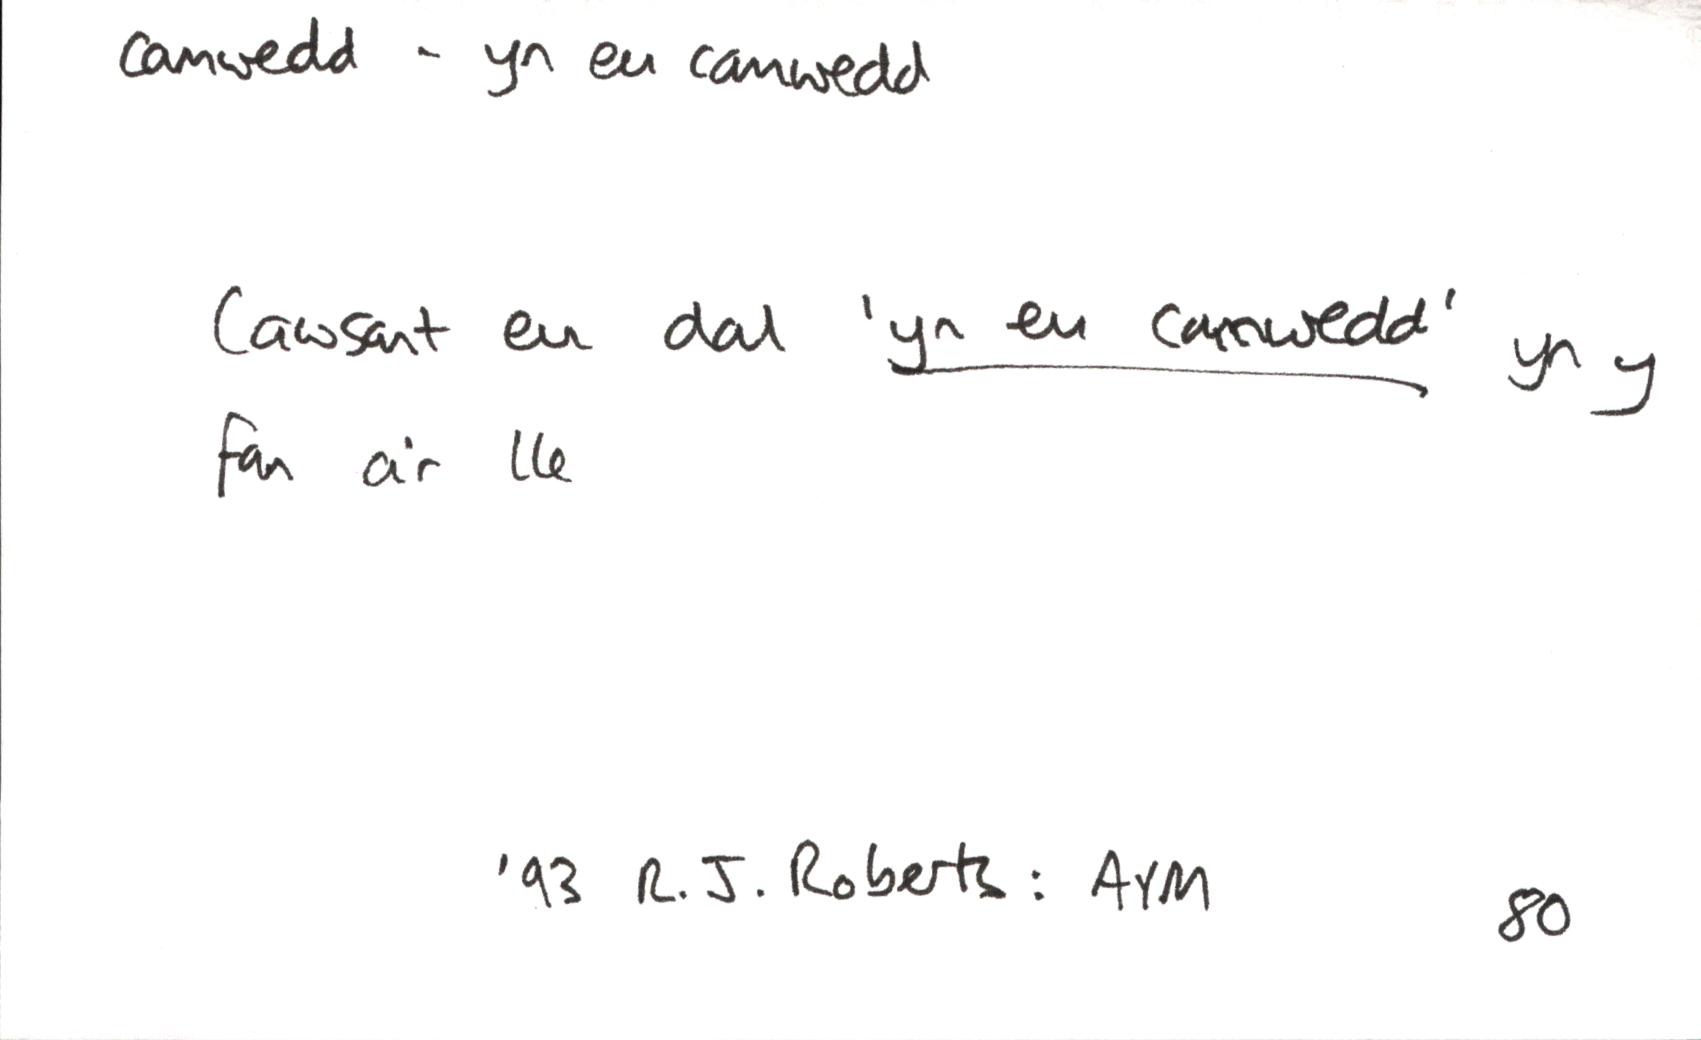 camwedd - yn eu camwedd
Cawsant eu dal 'yn eu camwedd' yn y
fan a'r lle
'93 R.J. Roberts: AYM
80